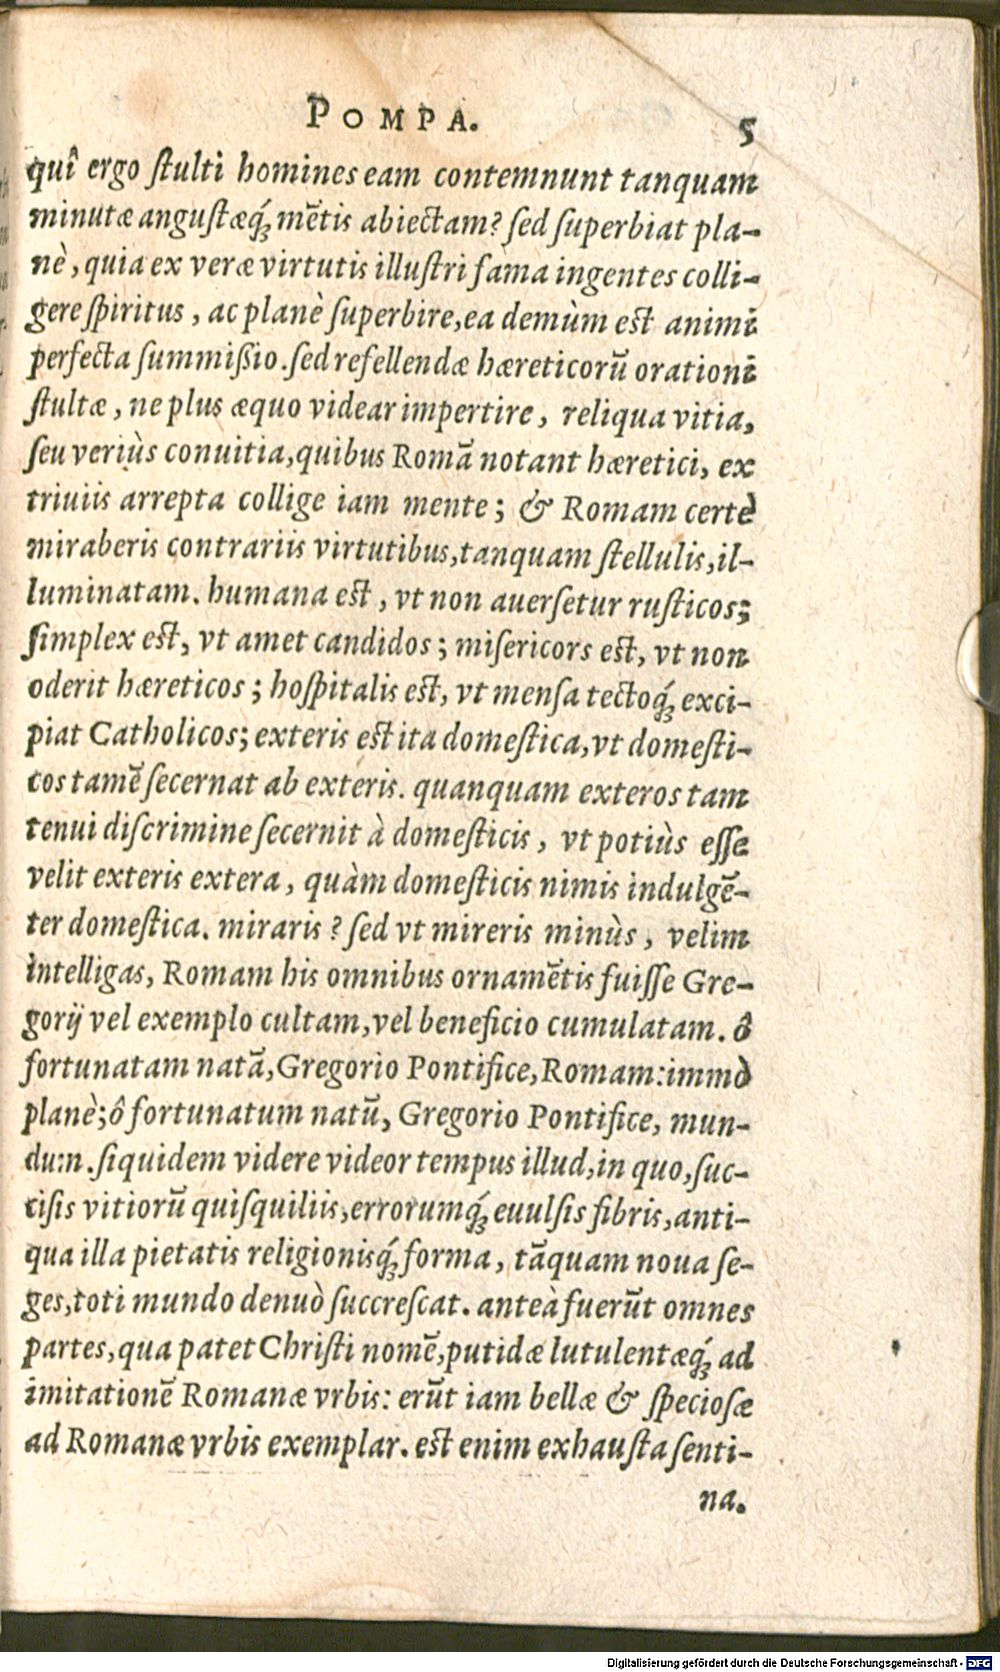 POMPA. 5
quî ergo ſtulti homines eam contemnunt tanquam
minutæ anguſtæq́ʒ mẽtis abiectam? ſed ſuperbiat pla-
nè, quia ex veræ virtutis illuſtri fama ingentes colli-
gere ſpiritus, ac planè ſuperbire, ea demùm eſt animi
perfecta ſummiſsio. ſed refellendæ hæreticorũ orationi
ſtultæ, ne plus æquo videar impertire, reliqua vitia,
ſeu veriùs conuitia, quibus Romã notant hæretici, ex
triuiis arrepta collige iam mente; & Romam certè
miraberis contrariis virtutibus, tanquam ſtellulis, il-
luminatam. humana eſt, vt non auerſetur ruſticos;
ſimplex eſt, vt amet candidos; miſericors eſt, vt non
oderit hæreticos; hoſpitalis eſt, vt menſa tectoq́ʒ exci-
piat Catholicos; exteris eſt ita domeſtica, vt domeſti-
cos tamẽ ſecernat ab exteris. quanquam exteros tam
tenui diſcrimine ſecernit à domeſticis, vt potiùs eſſe
velit exteris extera, quàm domeſticis nimis indulgẽ-
ter domeſtica. miraris? ſed vt mireris minùs, velim
intelligas, Romam his omnibus ornamẽtis fuiſſe Gre-
gorij vel exemplo cultam, vel beneficio cumulatam. ô
fortunatam natã, Gregorio Pontifice, Romam: immò
planè; ô fortunatum natũ, Gregorio Pontifice, mun-
dum. ſiquidem videre videor tempus illud, in quo, ſuc-
ciſis vitiorũ quiſquiliis, errorumq́ʒ euulſis fibris, anti-
qua illa pietatis religionisq́ʒ forma, tãquam noua ſe-
ges, toti mundo denuò ſuccreſcat. anteà fuerũt omnes
partes, qua patet Chriſti nomẽ, putidæ lutulentæq́ʒ ad
imitationẽ Romanæ vrbis: erũt iam bellæ & ſpecioſæ
ad Romanæ vrbis exemplar. eſt enim exhauſta ſenti-
na.
Digitalisierung gefördert durch die Deutsche Forschungsgemeinschaft - DFG